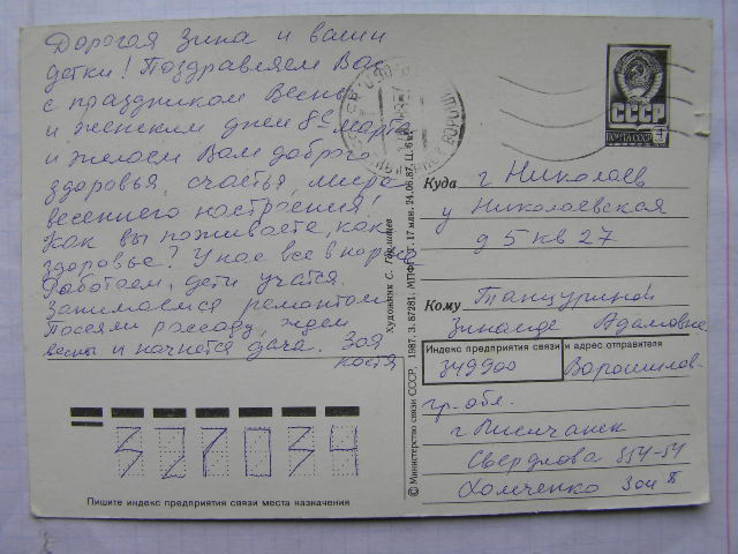 Дорогая Зина и ваши
детки! Поздравляем Вас
с праздником Весны
и женским днем 8с Марта
и желаем Вам доброго
здоровья, счастья, мира
весеннего настроения!
Как вы поживаете, как
здоровье? У нас все в норме
Работаем, дети учатся.
Занимаемся ремонтом
Посеяли рассаду, ждем
весны и начнется дача. Зоя
Костя
СССР
ПОЧТА СССР
Куда г Николаев
у Николаевская
д 5 кв 27
Кому Танцуриной
Зинаиде Адамовне
Индекс предприятия связи и адрес отправителя
349900 Ворошилов-
гр. обл.
г Лисичанск
Свердлова 354-51
Хомченко Зои
327034
Пишите индекс предприятия связи места назначения
Художник С.
© Министерство связи СССР, 1987. З. 87281. МПФГ. Т. 17 млн. 24.06.87. Ц.